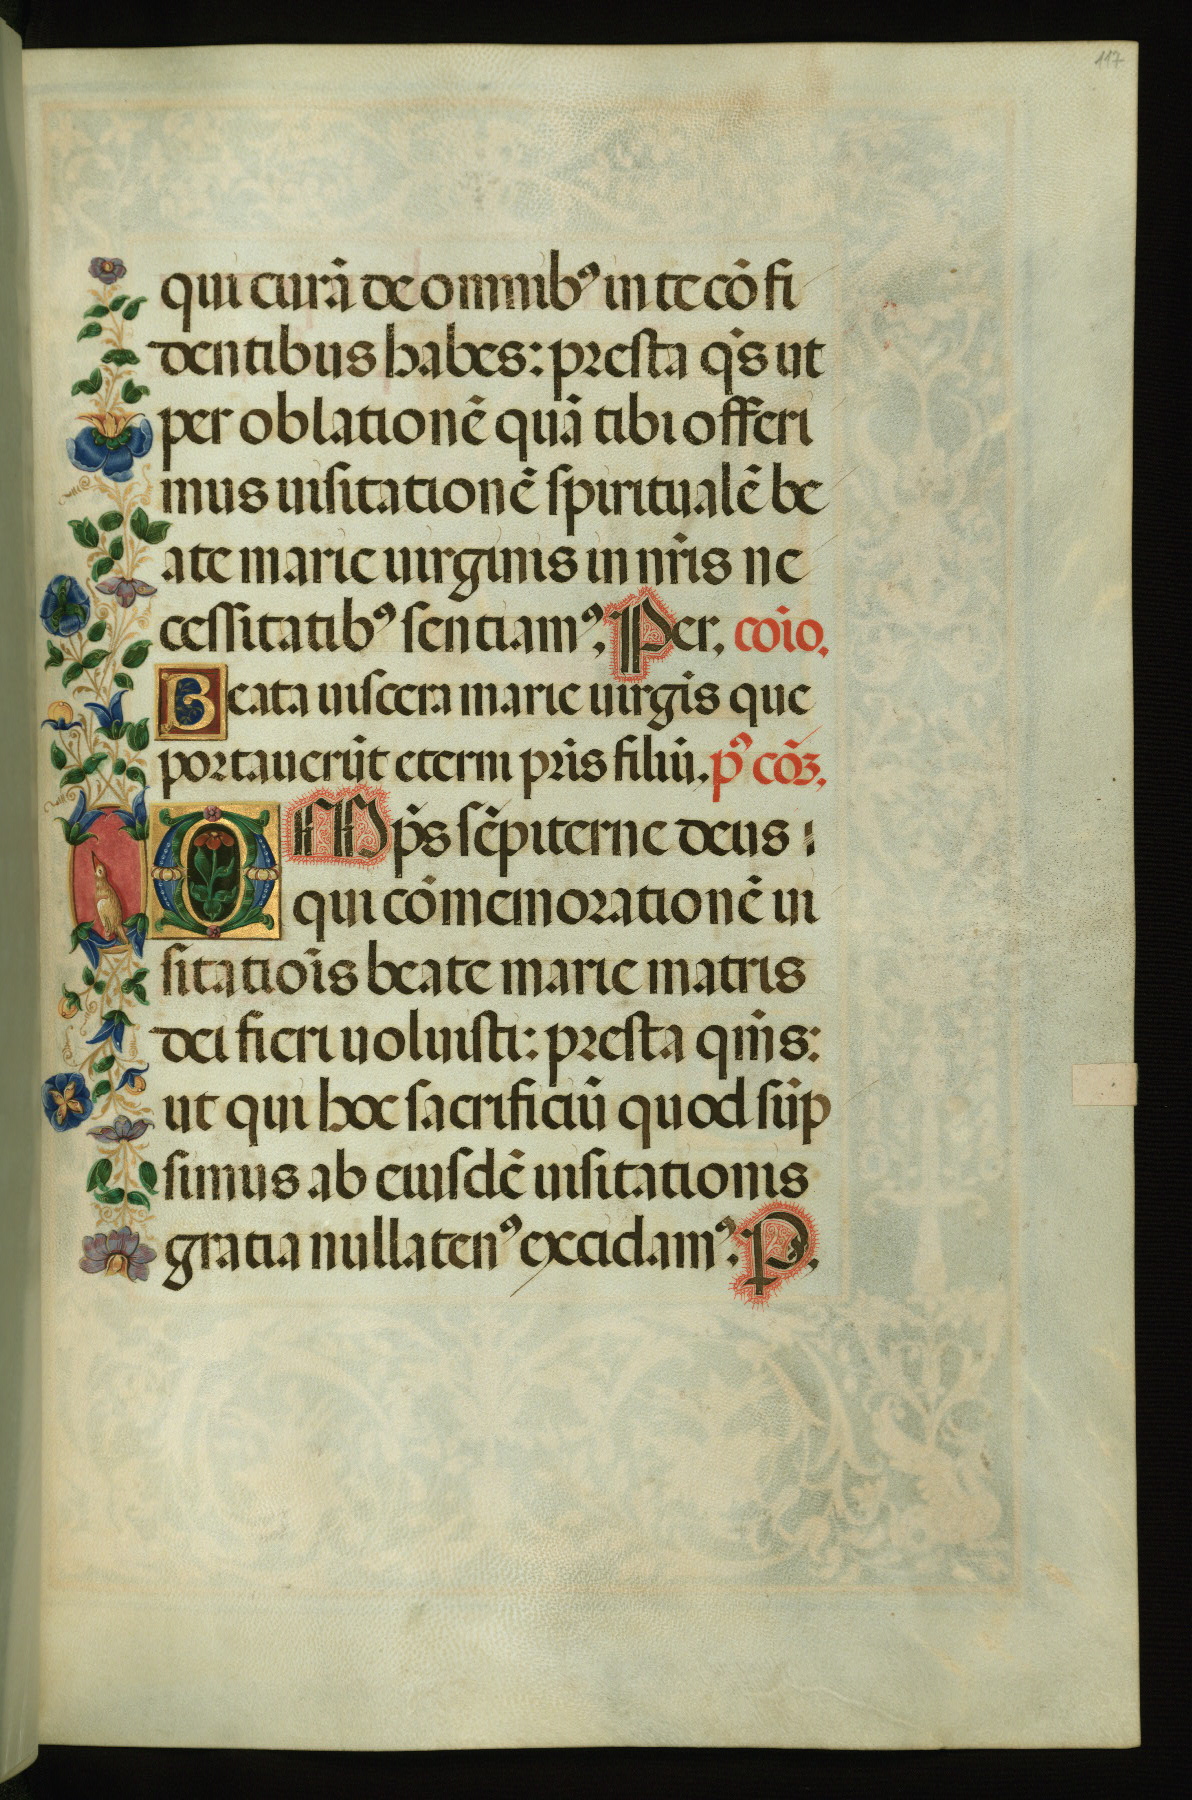 117
qui curā de omnibꝰ in te cō fi
dentibus habes: presta qs̄ ut
per oblationē quā tibi offeri
mus uisitationē spiritualē be
ate marie uirginis in nr̄is ne
cessitatibꝰ sentiamꝰ; Per, cōio.
Beata uiscera marie uirgīs que
portauerūt eterni pr̄is filiū. pꝰ cōꝫ.
OMp̄s sēpiterne deus :
qui cōmemorationē ui
sitatiōis beate marie matris
dei fieri uoluisti: presta qm̄s:
ut qui hoc sacrificiū quod sūp
simus ab eiusdē uisitationis
gratia nullatenꝰ excidamꝰ. P.